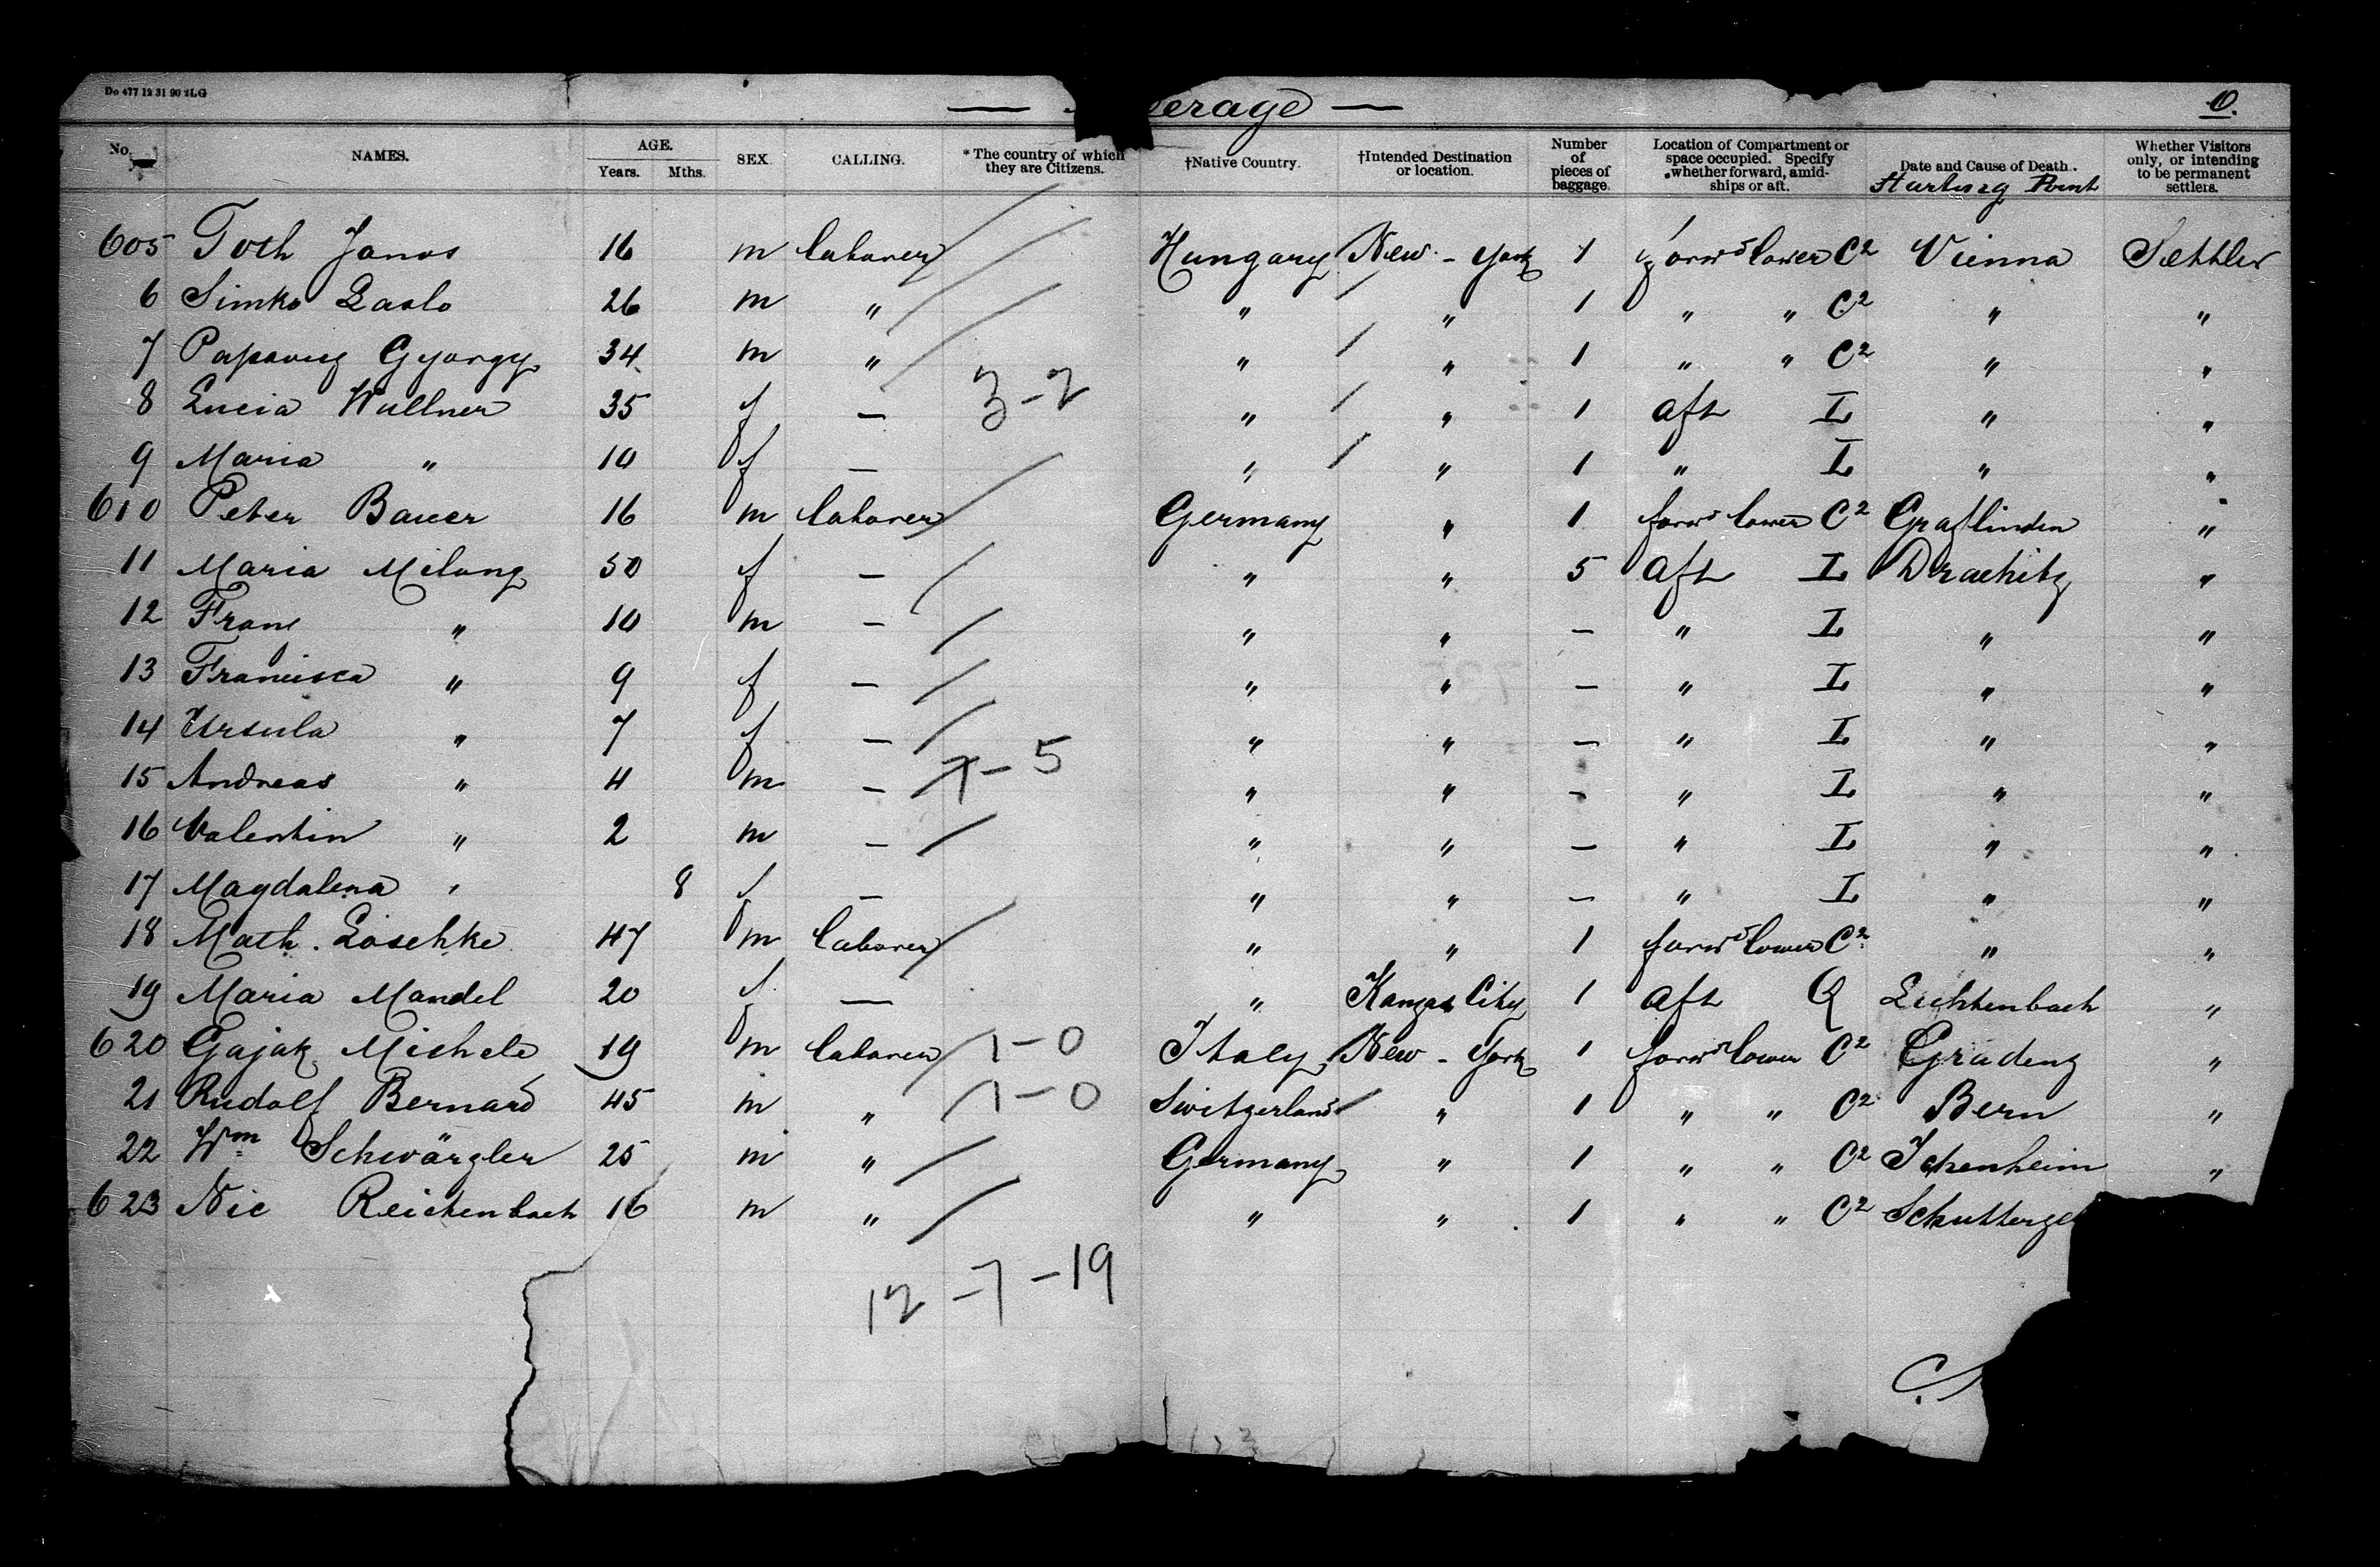 Do 477 12 31 90 2LG
— erage — 10.
No. NAMES. AGE. Years. Mths. SEX. CALLING. * The country of which they are Citizens. †Native Country. †Intended Destination or location. Number of pieces of baggage. Location of Compartment or space occupied. Specify whether forward, amidships or aft. Date and Cause of Death. Starting Point Whether Visitors only, or intending to be permanent settlers.
605 Toth Janos 16 m laborer Hungary New-York 1 forwd lower C2 Vienna Settler
6 Simko Laslo 26 m " " " 1 " " C2 " "
7 Gyorgy 34 m " " " 1 " " C2 " "
3-2
8 Lucia Wullner 35 f — " " 1 aft I " "
9 Maria " 10 f — " " 1 " I " "
610 Peter Bauer 16 m laborer Germany " 1 forwd lower C2 Graflinden "
11 Maria Milong 50 f — " " 5 aft I Drachitz "
12 Franz " 10 m — " " — " I " "
13 Francisca " 9 f — " " — " I " "
14 Ursula " 7 f — " " — " I " "
7-5
15 Andreas " 4 m — " " — " I " "
16 Valentin " 2 m — " " — " I " "
17 Magdalena " 8 f — " " — " I " "
18 Math. Löschke 47 m laborer " " 1 forwd lower C2 " "
19 Maria Mandel 20 f — " Kansas City 1 aft Q Lichtenbach "
620 Gajak Michele 19 m laborer 1-0 Italy New-York 1 forwd lower C2 Gradenz "
21 Rudolf Bernard 45 m " 1-0 Switzerland " 1 " " C2 Bern "
22 Wm Schwärzler 25 m " Germany " 1 " " C2 Ichenheim "
623 Nic Reichenbach 16 m " " " 1 " " C2 Schutterze
12-7-19